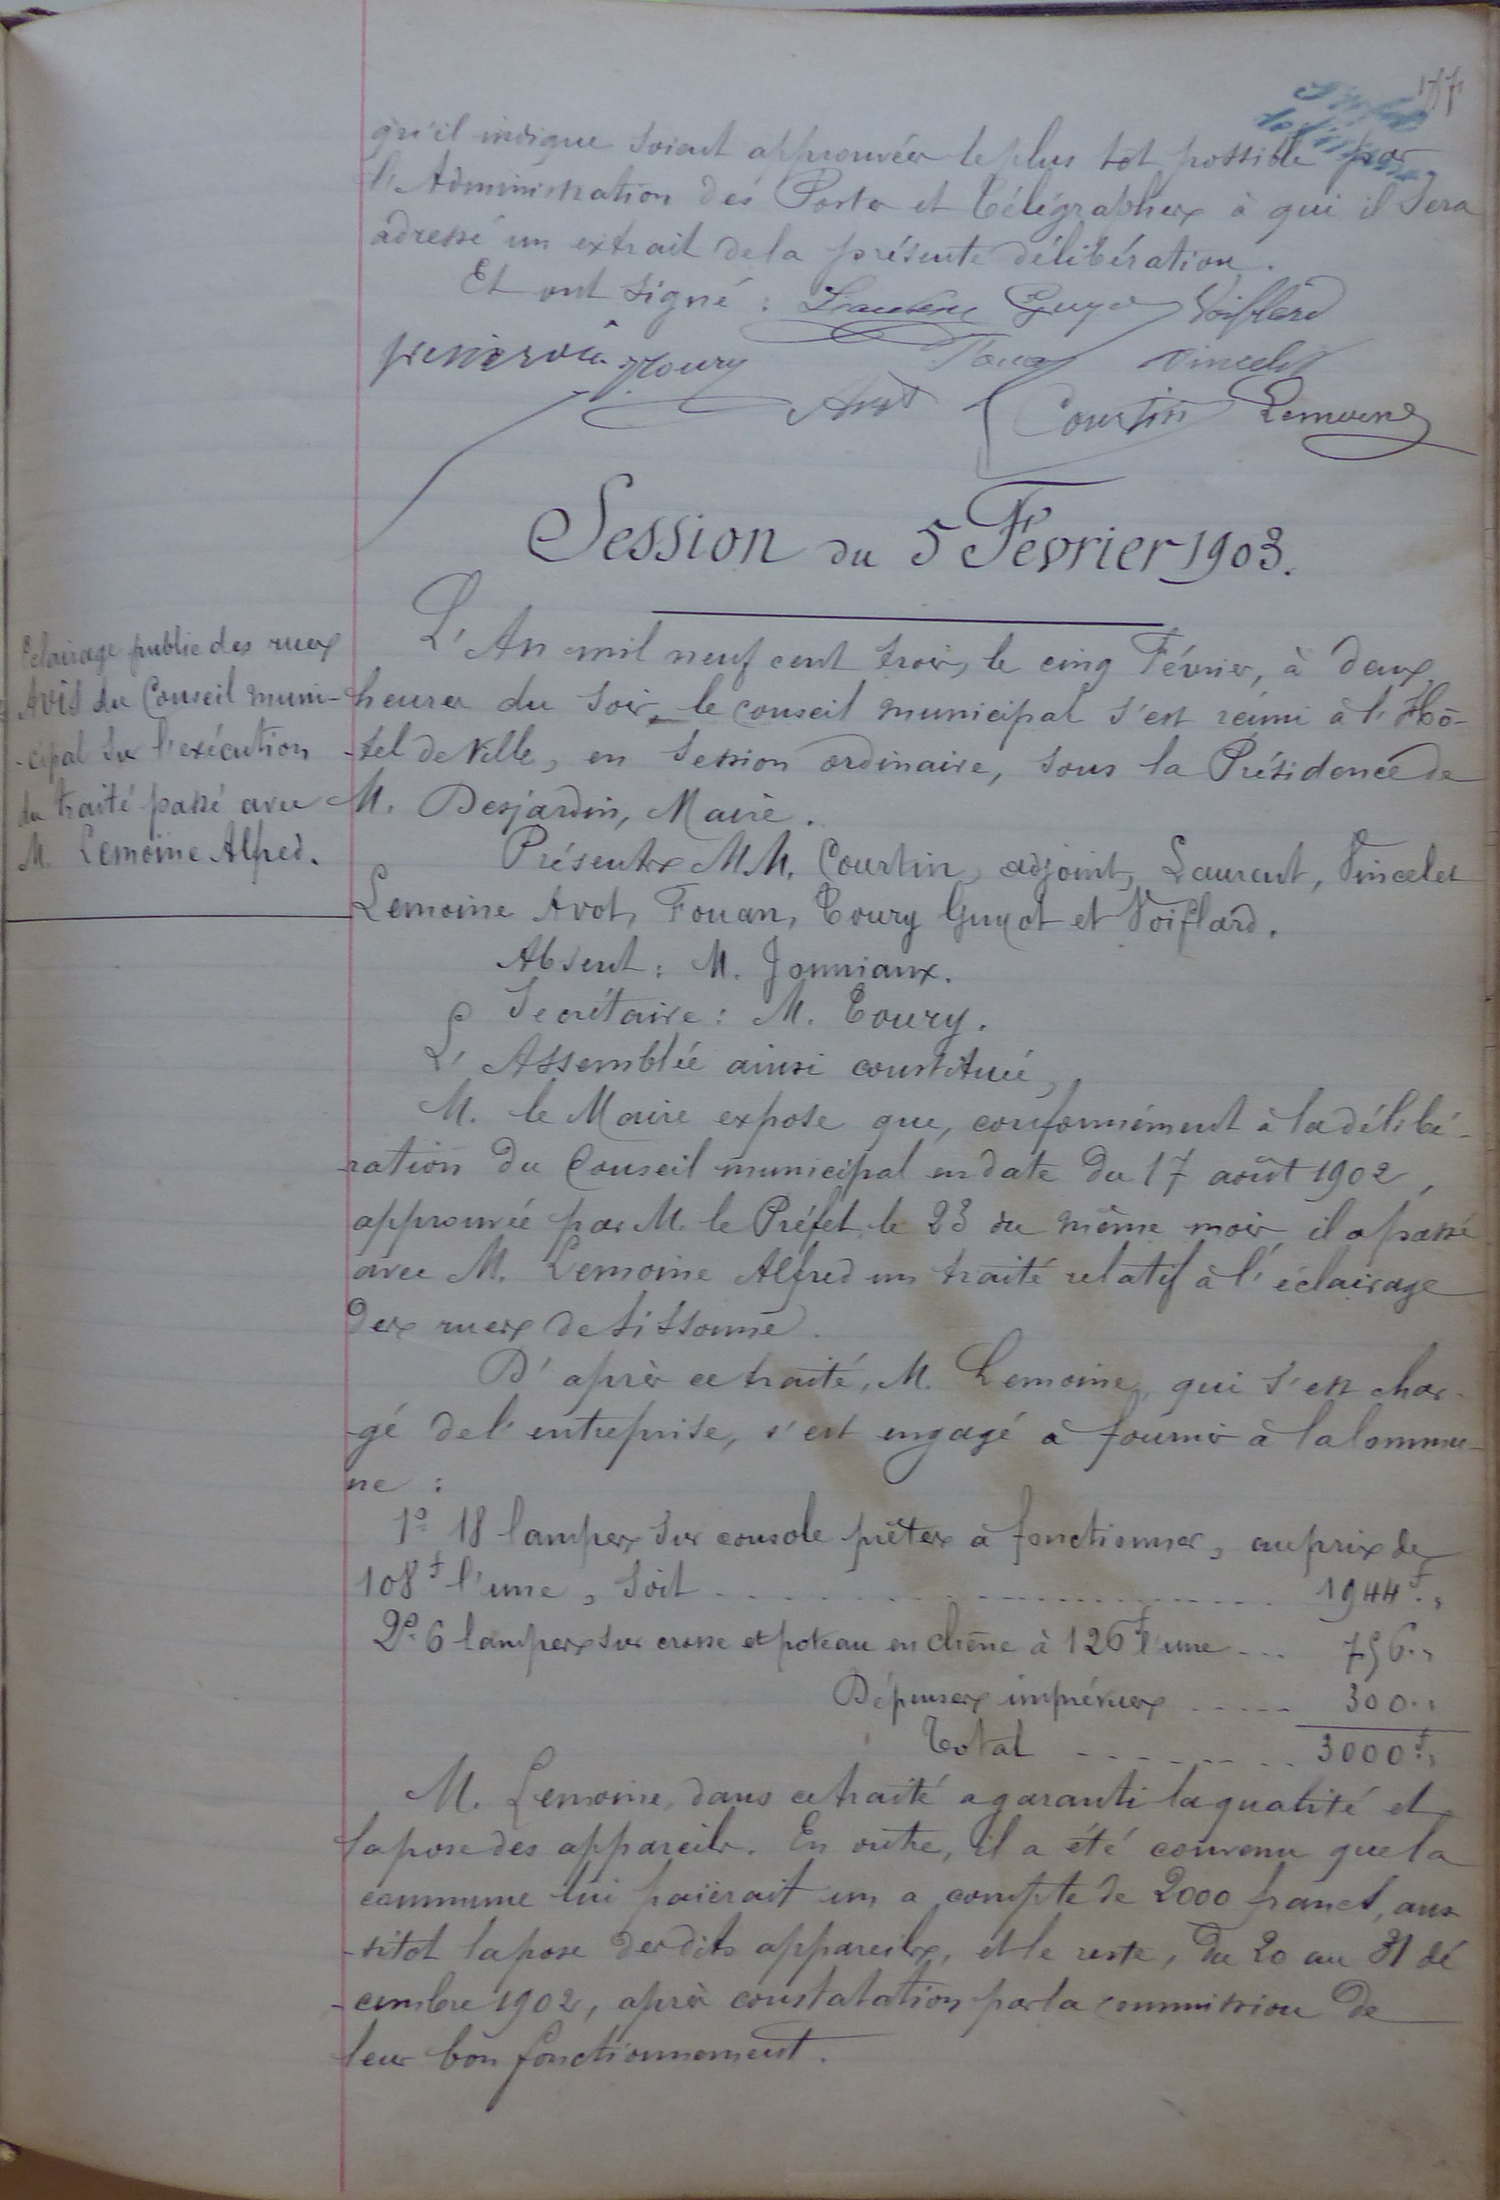 qu'il indique soient approuvées le plus tôt possible par
l'Administration des Postes et Télégraphes à qui il sera
adressé un extrait de la présente délibération.
Et ont signé : Guyot Voiflard
Toury Fouan Vincelet
Avot Courtin Lemoine
Session du 5 Février 1903.
Eclairage public des rues
Avis du Conseil muni-
-cipal sur l'exécution
du traité passé avec
M. Lemoine Alfred.
L'An mil neuf cent trois, le cinq Février, à deux
heures du soir, le conseil municipal s'est réuni à l'Hô-
-tel de Ville, en session ordinaire, sous la Présidence de
M. Desjardin, Maire.
Présents MM. Courtin, adjoint, Laurent, Vincelet
Lemoine Avot, Fouan, Toury Guyot et Voiflard.
Absent : M. Jonniaux.
Secrétaire : M. Toury.
L'Assemblée ainsi constituée,
M. le Maire expose que, conformément à la délibé-
-ration du Conseil municipal en date du 17 août 1902,
approuvée par M. le Préfet le 23 du même mois, il a passé
avec M. Lemoine Alfred un traité relatif à l'éclairage
des rues de Sissonne.
D'après ce traité, M. Lemoine, qui s'est char-
-gé de l'entreprise, s'est engagé à fournir à la Commu-
ne :
1º 18 lampes sur console prêtes à fonctionner, au prix de
108f l'une, soit - - - - 1944f.,
2º 6 lampes sur crosse et poteau en chêne à 126f l'une - - - 756.,
Dépenses imprévues - - - - - 300.,
Total - - - - - - - 3000f.,
M. Lemoine, dans ce traité a garanti la qualité et
la pose des appareils. En outre, il a été convenu que la
commune lui paierait un a compte de 2000 francs, aus
-sitot la pose des dits appareils, et le reste, du 20 au 31 dé
-cembre 1902, après constatation par la commission de
leur bon fonctionnement.